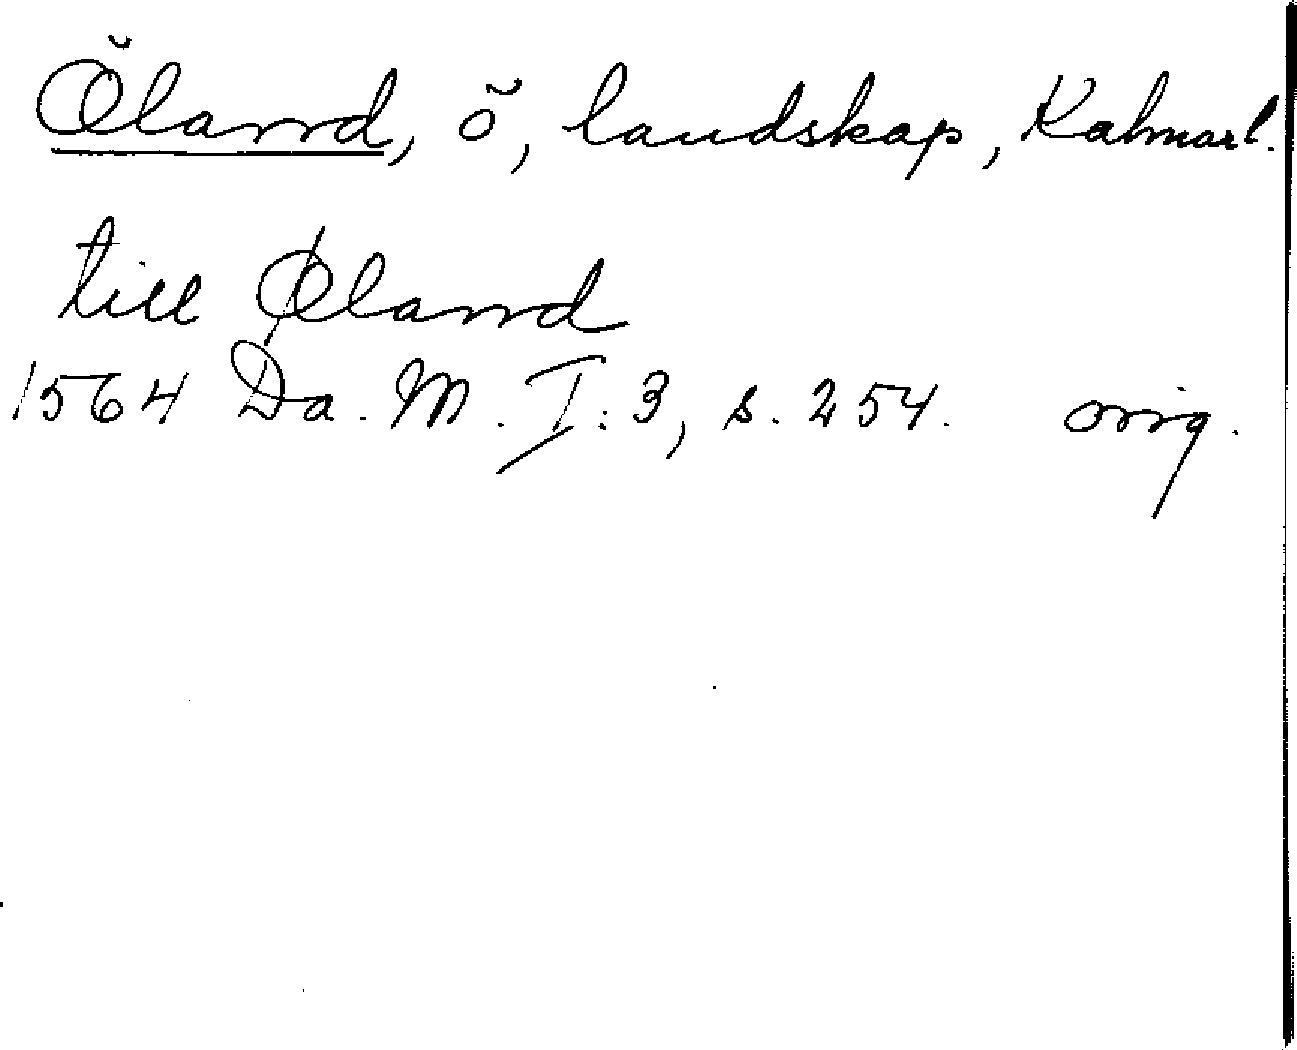 Öland, ö, landskap, Kalmar l.
till Øland
1564 Da. M. I: 3, s. 254. orig.